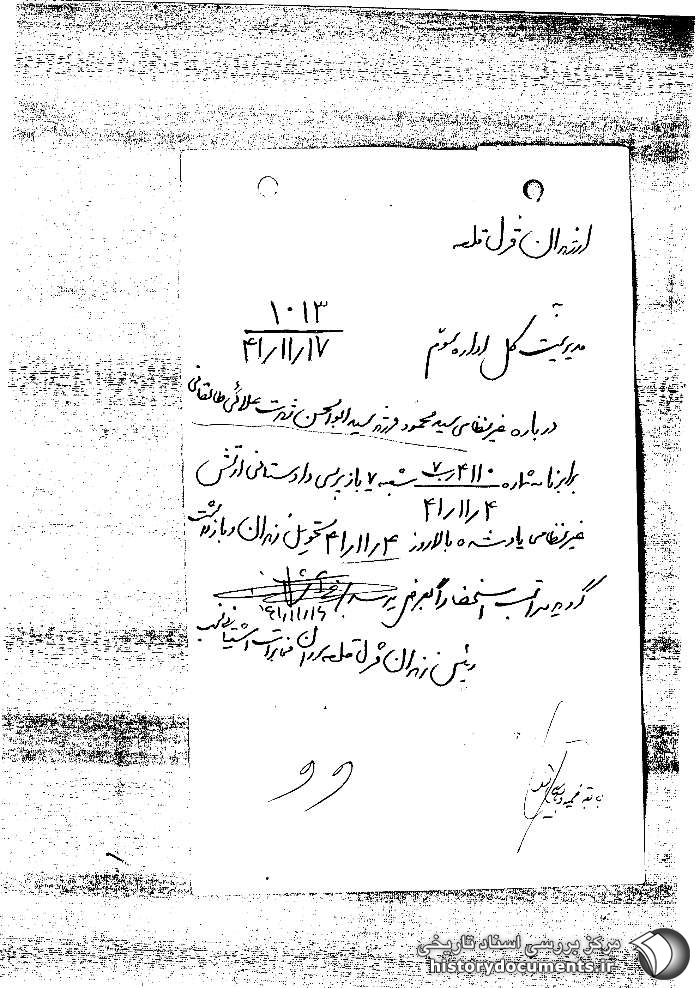 از زندان قزل قلعه
به
مدیریت کل اداره سوم
۱۰۱۳
۴۱/۱۱/۱۷
درباره غیرنظامی سید محمود فرزند سید ابوالحسن شهرت علائی طالقانی
برابر نامه شماره ۴۱۱۰ شعبه ۷ بازپرسی دادستانی ارتش
۴۱/۱۱/۴
غیرنظامی یاد شده بالا روز ۴۱/۱۱/۴ تحویل زندان و بازداشت
گردید مراتب استحضاراً بعرض میرسد
۴۱/۱۱/۱۶
رئیس زندان قزل قلعه
۹۹
مرکز بررسی اسناد تاریخی
historydocuments.ir